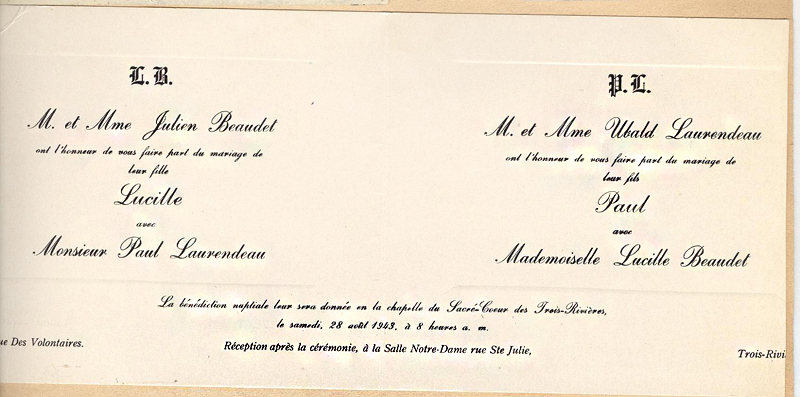 L. B.
M. et Mme Julien Beaudet
ont l'honneur de vous faire part du mariage de
leur fille
Lucille
avec
Monsieur Paul Laurendeau
P. L.
M. et Mme Ubald Laurendeau
ont l'honneur de vous faire part du mariage de
leur fils
Paul
avec
Mademoiselle Lucille Beaudet
La bénédiction nuptiale leur sera donnée en la chapelle du Sacré-Coeur des Trois-Rivières,
le samedi, 28 août 1943, à 8 heures a. m.
Réception après la cérémonie, à la Salle Notre-Dame rue Ste Julie,
ue Des Volontaires.
Trois-Rivi